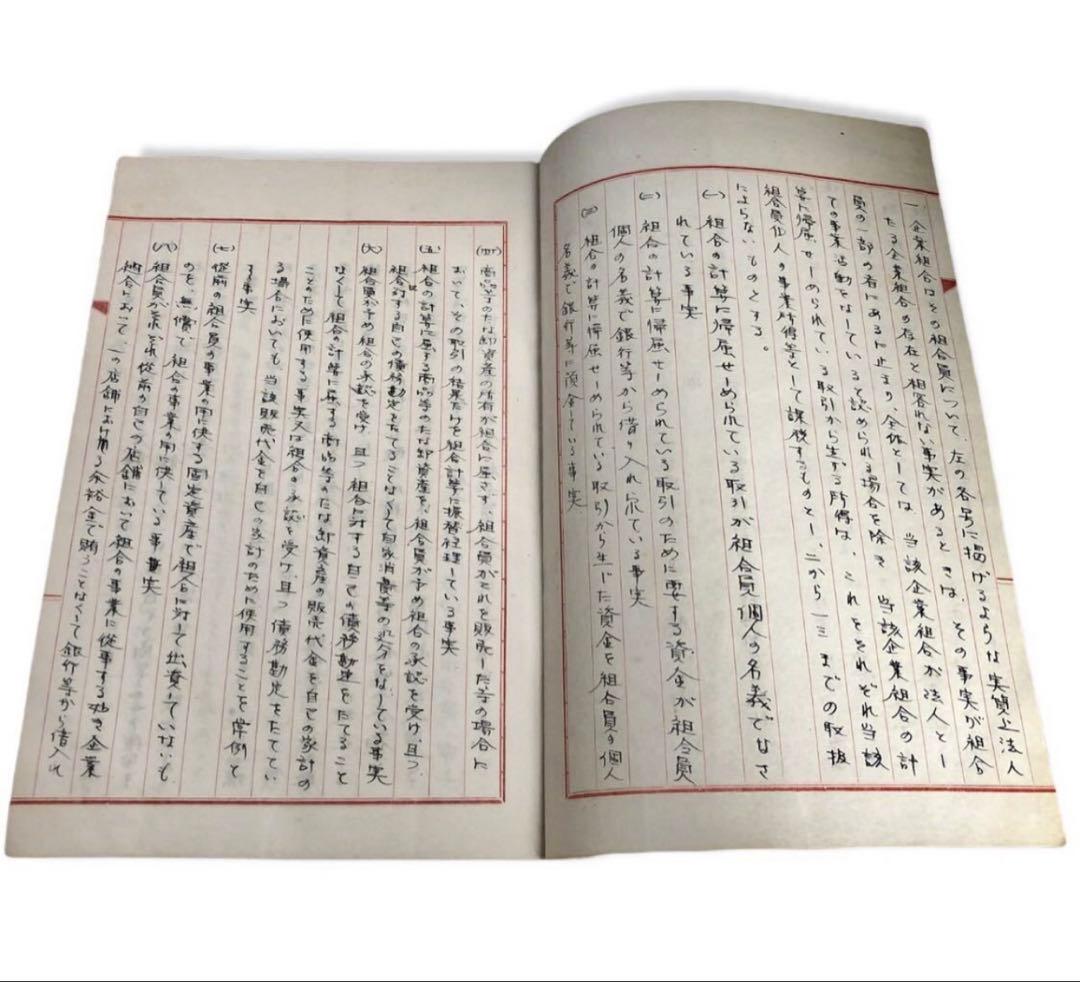 一 企業組合はその組合員について、左の各号に掲げるような実質上法人
たる企業組合の存在と相容れない事実があるときは、その事実が組合
員の一部の者にあるに止まり全体としては、当該企業組合が法人とし
ての事業活動をなしていると認められる場合を除き 当該企業組合の計
算に帰屈せしめられている取引から生ずる所得は、これをそれぞれ当該
組合員個人の事業所得等として課税するものとし、二から一三までの取扱
によらないものとする。
(一) 組合の計算に帰屈せしめられている取引が組合員個人の名義でなさ
れている事実
(二) 組合の計算に帰屈せしめられている取引のために要する資金が組合員
個人の名義で銀行等から借り入れられている事実
(三) 組合の計算に帰屈せしめられている取引から生じた資金を組合員の個人
名義で銀行等に預金している事実
(四) 商品等のたな卸資産の所有が組合に屈さず、組合員がこれを販売した等の場合に
おいて、その取引の結果だけを組合計算に振替経理している事実
(五) 組合の計算に屈する商品等のたな卸資産を、組合員が予め組合の承認を受け、且つ、
組合に対する自己の債務勘定をたてることなくして自家消費等の処分をなしている事実
(六) 組合員が予め組合の承認を受け、且つ組合に対する自己の債務勘定をたてること
なくして、組合の計算に屈する商品等のたな卸資産の販売代金を自己の家計の
ことのために使用する事実又は組合の承認を受け、且つ債務勘定をたててい
る場合においても、当該販売代金を自己の家計のために使用することを常例と
する事実
(七) 従前の組合員の事業の用に供する固定資産で組合に対して出資していないも
のを、無償で組合の事業の用に供している事実
(八) 組合員が夫々従前の自己の店舗において組合の事業に従事する企業
組合において、一の店舗における余裕金で賄うことなくして銀行等から借入れ